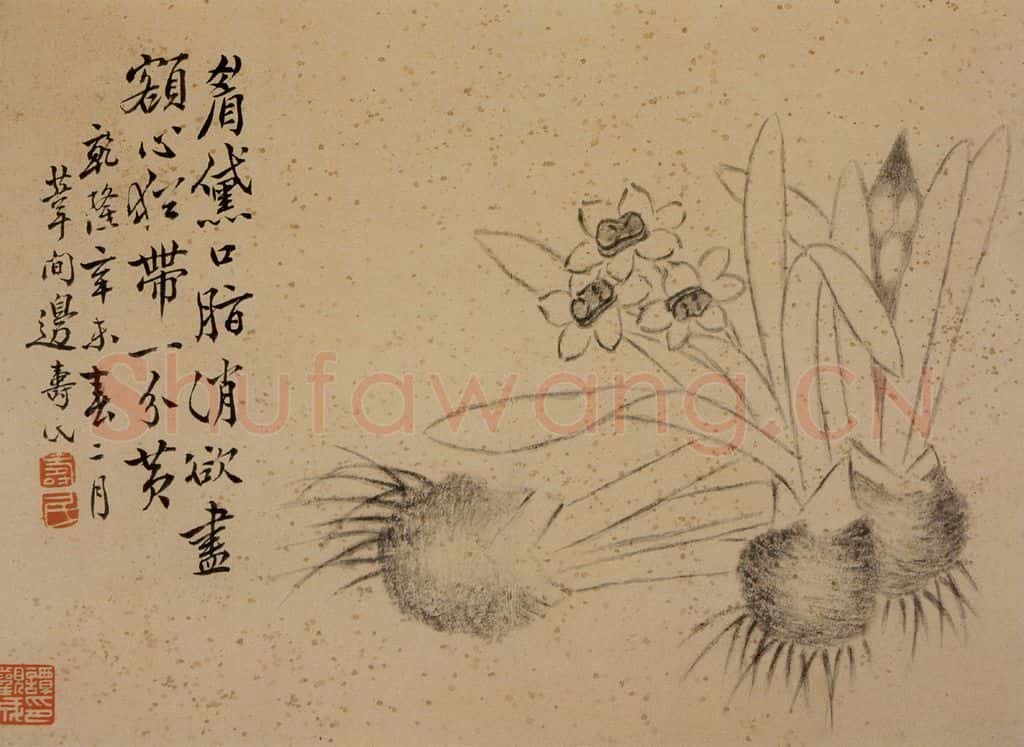 眉黛口脂消欲盡
額心猶帶一分黄
乾隆辛未春二月
葦間邊壽民
壽民
Shufawang.CN